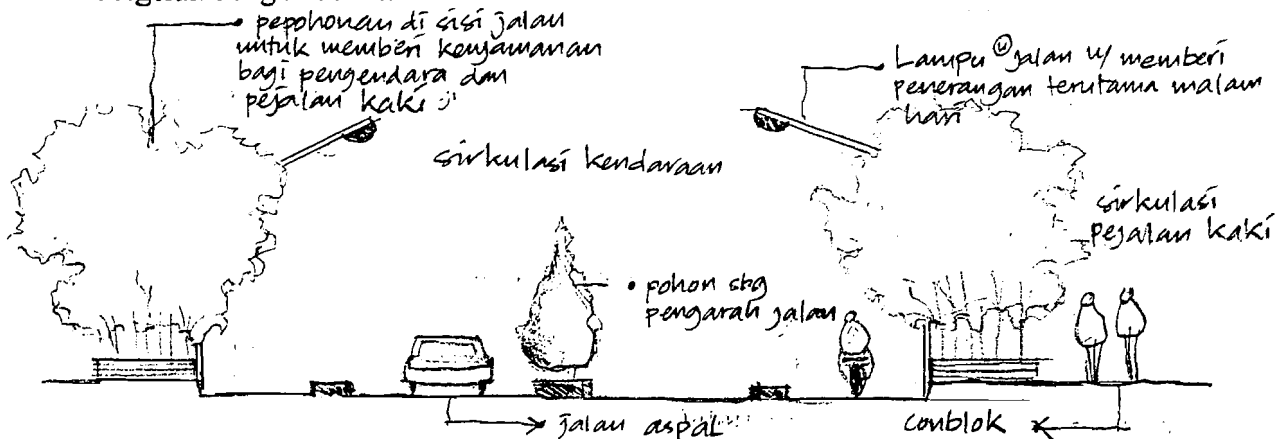 • pepohonan di sisi jalan
untuk memberi kenyamanan
bagi pengendara dan
pejalan kaki
• Lampu jalan u/ memberi
penerangan terutama malam
hari
sirkulasi kendaraan
sirkulasi
pejalan kaki
• pohon sbg
pengarah jalan
jalan aspal
conblok